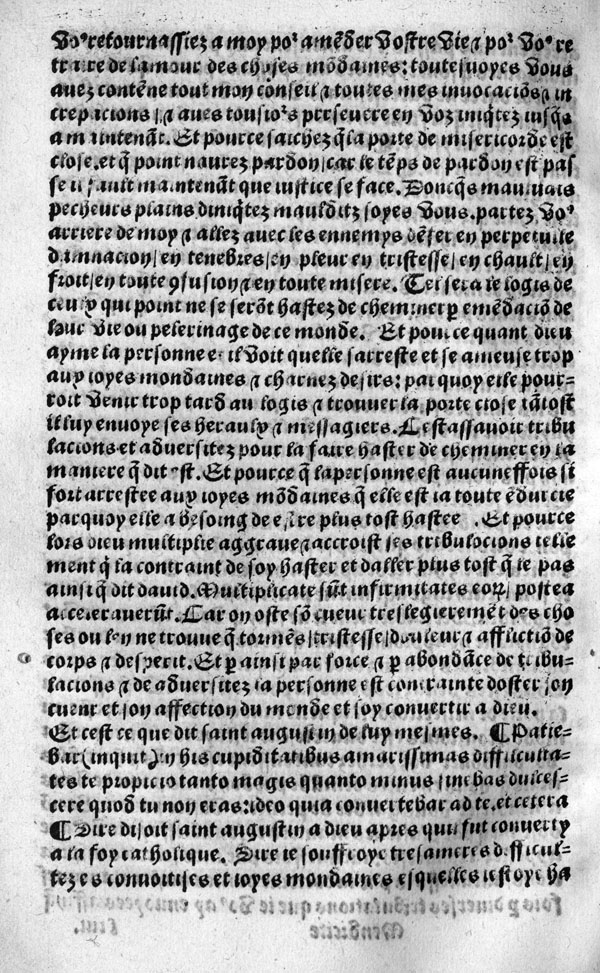 Vo⁹ retournassiez a moy po² amēder vostre vie ⁊ po² vo⁹ re
traire de lamour des choses mōdaines: toutesvoyes vous
avez contēne tout mon conseil ⁊ toutes mes invocaciōs ⁊ in
crepacions / ⁊ aves tousio²s perseuere en voz iniq̄tez iusq̄s
a maintenāt. Et pource saichez q̄ la porte de misericorde est
close, et q̄ point naurez pardon / car le tēps de pardon est pas
se il fault maintenant que iustice se face. Doncq̄s mauuais
pecheurs plains diniq̄tez maulditz soyes vous. partez vo⁹
arriere de moy ⁊ allez avec les ennemys dēfer en perpetuelle
damnacion / en tenebres / en pleur en tristesse / en chault / en
froit / en toute ꝯfusion ⁊ en toute misere. Tel sera le logis de
ceulx qui point ne se serōt hastez de cheminer p̄ emēdaciō de
leur vie ou pelerinage de ce monde. Et pource quant dieu
ayme la personne et il voit quelle sarreste et se ameuse trop
aux ioyes mondaines ⁊ charnez desirs: parquoy elle pour-
roit venir trop tard au logis ⁊ trouver la porte close tātost
il luy envoye ses heraulx ⁊ messagiers. Cestassavoir tribu
lacions et adversitez pour la faire haster de cheminer en la
maniere q̄ dit est. Et pource q̄ la personne est aucuneffois si
fort arrestee aux ioyes mōdaines q̄ elle est ia toute ēdurcie
parquoy elle a besoing de estre plus tost hastee . Et pource
lors dieu multiplie aggrave ⁊ accroist ses tribulocions telle
ment q̄ la contraint de soy haster et daller plus tost q̄ le pas
ainsi q̄ dit david. Multiplicate sūt infirmitates eoꝝ / postea
acceleraverūt. Car on oste sō cueur treslegieremēt des cho
ses ou len ne trouve q̄ tormēs / tristesse / douleur ⁊ afflictiō de
corps ⁊ desperit. Et p̄ ainsi par force ⁊ p̄ abondāce de tribu-
lacions ⁊ de adversitez la personne est contrainte doster son
cueur et son affection du monde et soy convertir a dieu.
Et cest ce que dit saint augustin de luy mesmes. ¶ Patie-
bar (inquit) in his cupiditatibus amarissimas difficulta-
tes te propicio tanto magis quanto minus sinebas dulces-
cere quod tu non eras: ideo quia convertebar ad te. et cetera
¶ Sire disoit saint augustin a dieu apres quil fut converty
a la foy catholique. Sire ie souffroye tresameres difficul-
tez es convoitises et ioyes mondaines esquelles iestoye ha